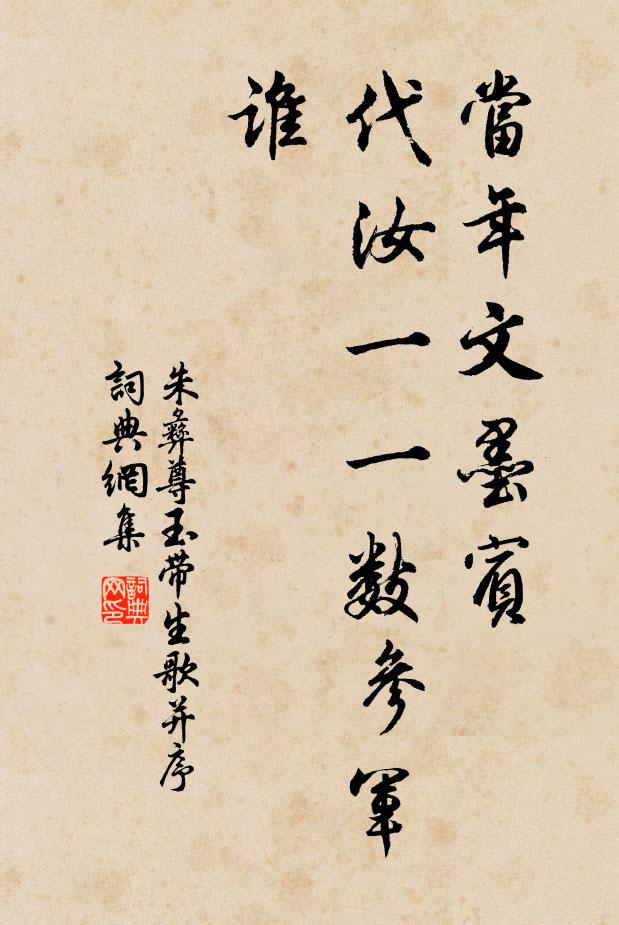 當年文墨賓
代汝一一數參軍
誰
朱彝尊玉帶生歌并序
詞典網集
詞典網印